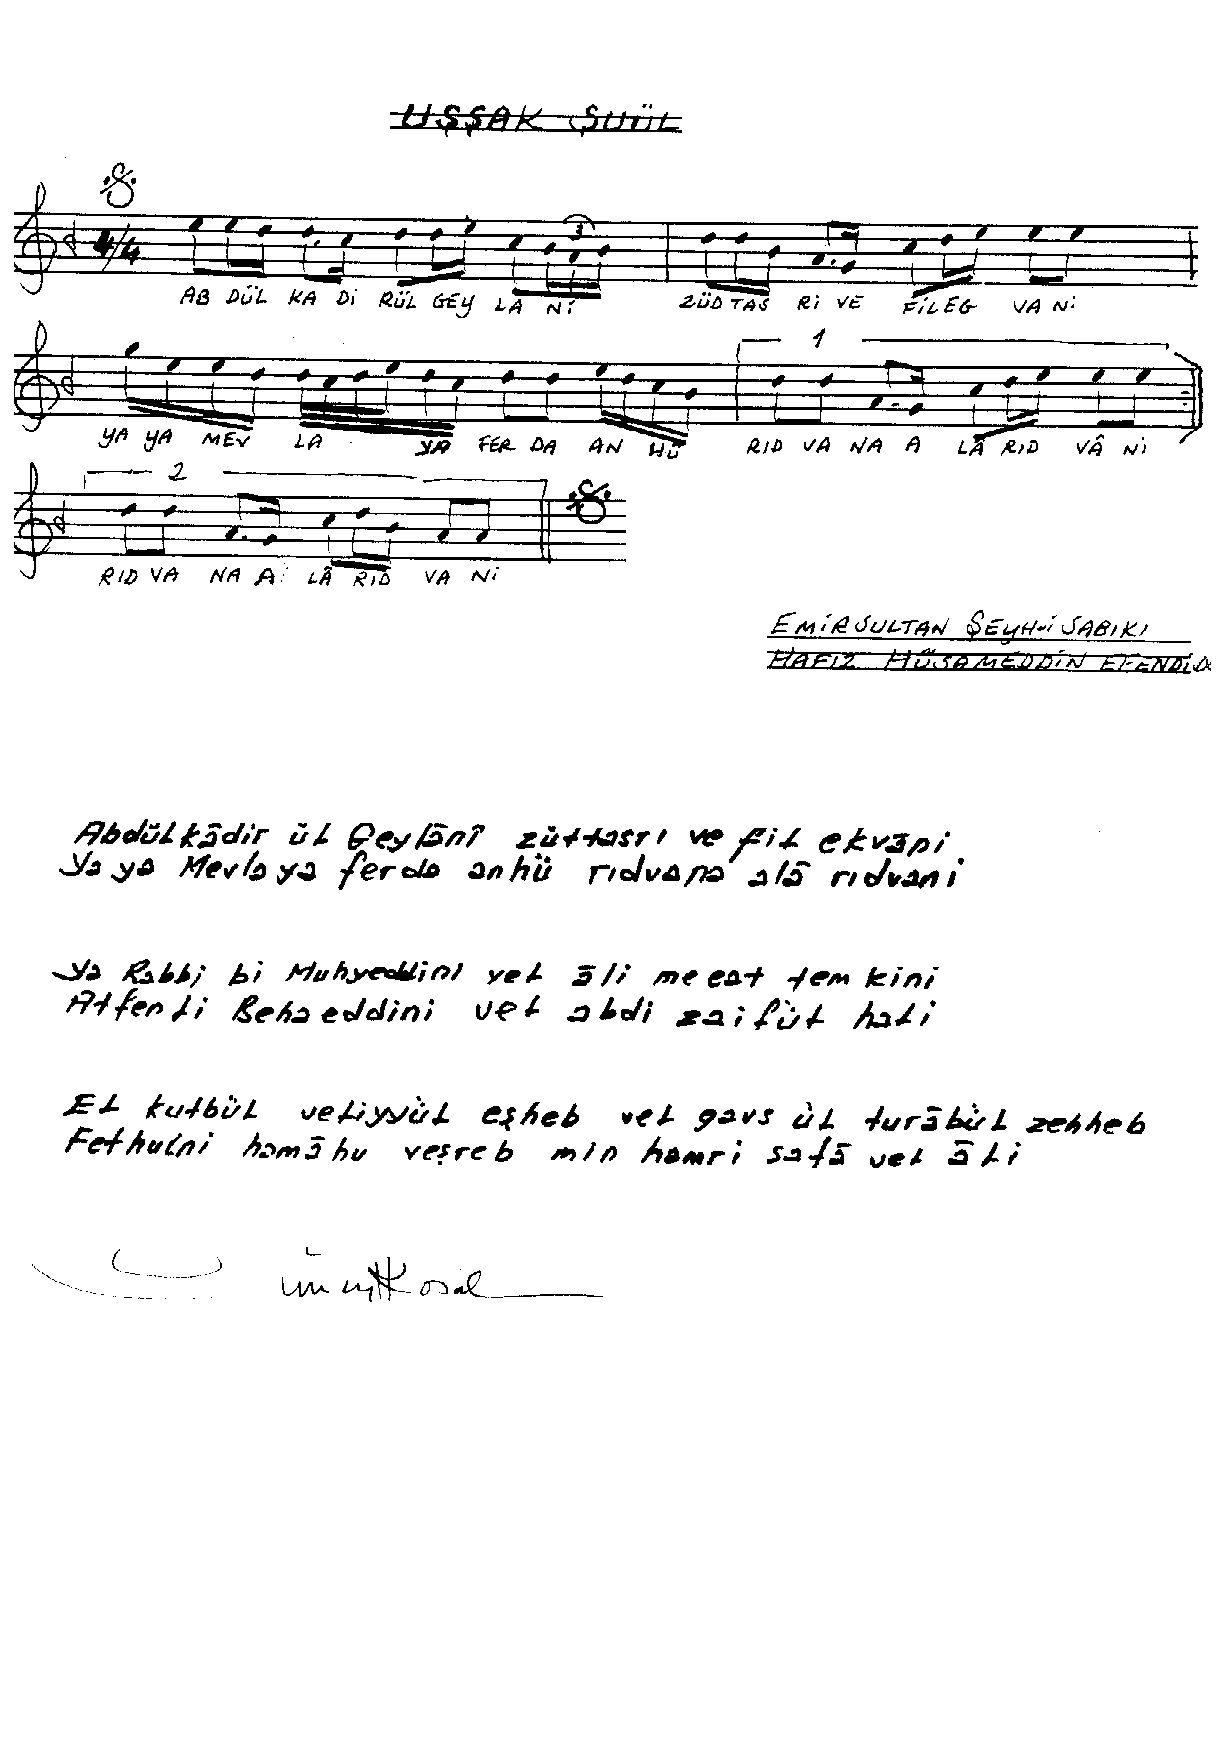 UŞŞAK ŞUÜL
4/4
3
AB DÜL KA Dİ RÜL GEY LA Nİ ZÜD TAS Rİ VE FİL EG VA Nİ
1
YA YA MEV LA YA FER DA AN HÜ RID VA NA A LÂ RID VÂ Nİ
2
RID VA NA A LÂ RID VA Nİ
EMİRSULTAN ŞEYH-İ SABIKI
HAFIZ HÜSAMEDDİN EFENDİDE
Abdülkâdir ül Geylânî züttasrı ve fil ekvâni
Ya ya Mevla ya ferda anhü rıdvana alâ rıdvani
Ya Rabbi bi Muhyeddini vel âli meeat temkini
Atfen li Behaeddini vel abdi zaifül hali
El kutbül veliyyül eşheb vel gavs ül turâbül zehheb
Fethulni hamâhu veşreb min hamri safâ vel âli